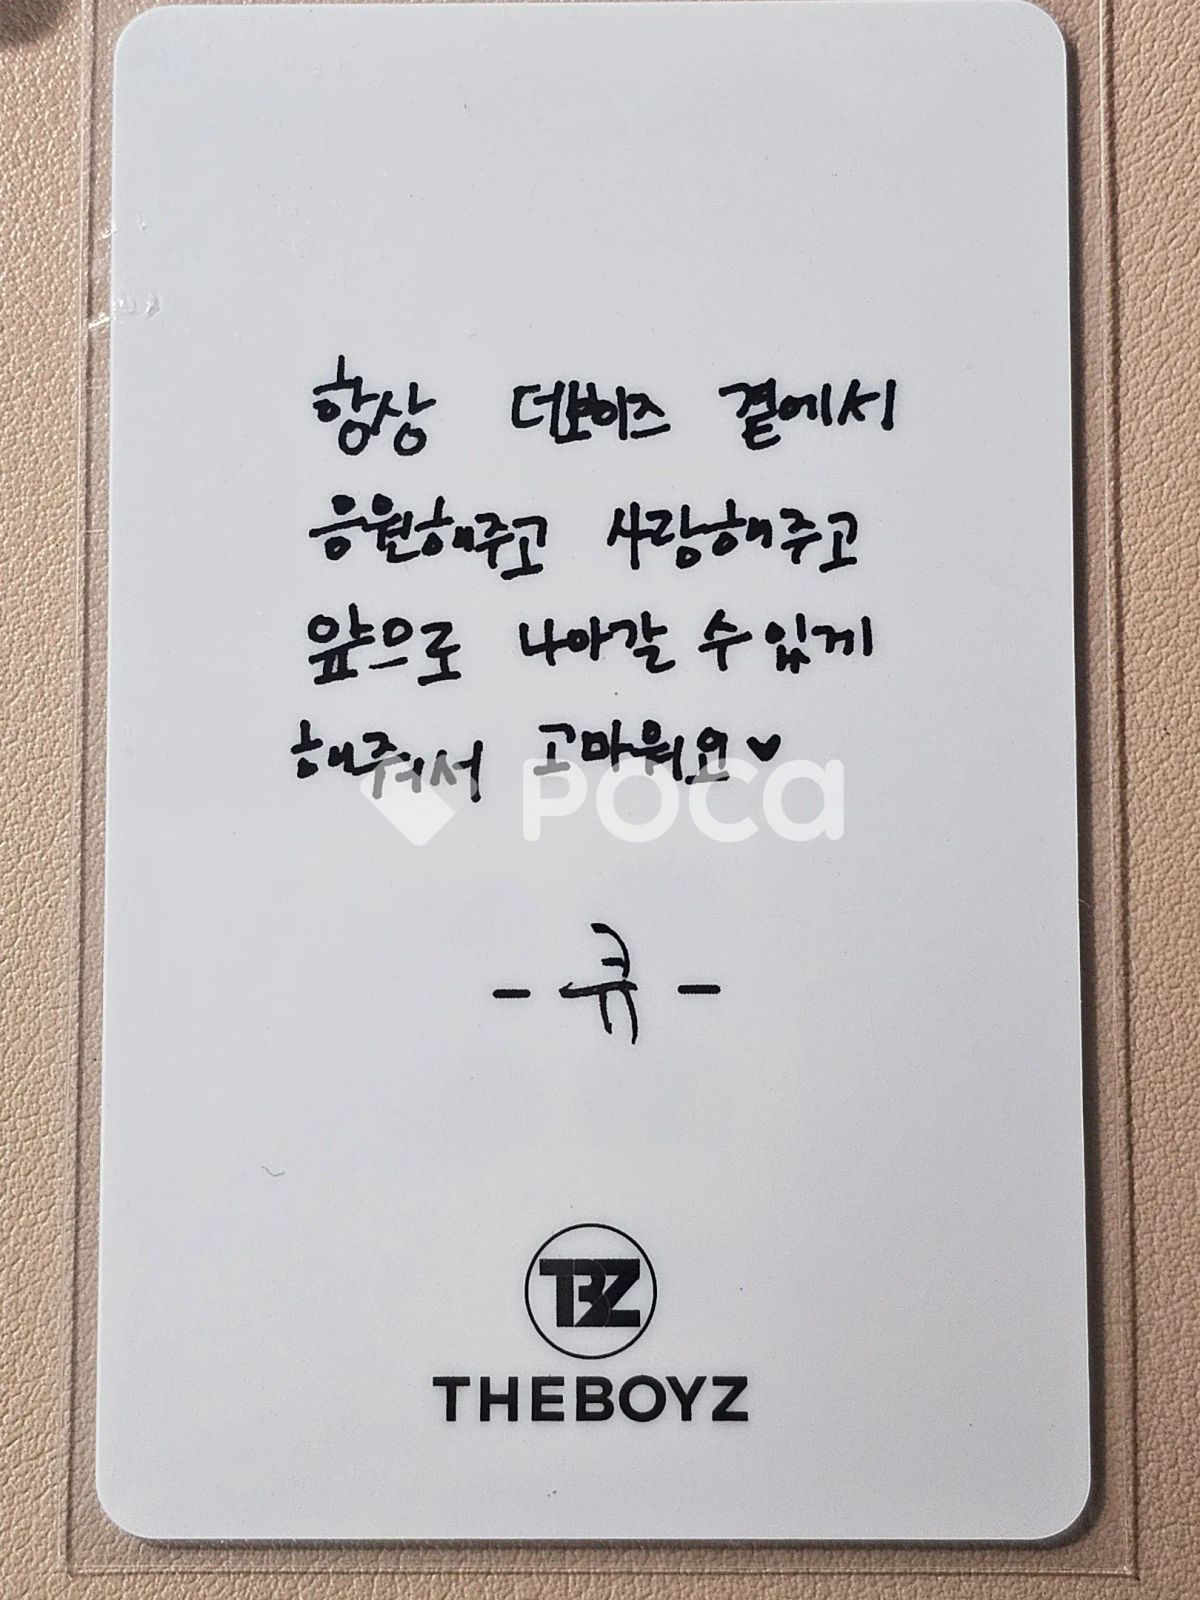 항상 더보이즈 곁에서
응원해주고 사랑해주고
앞으로 나아갈 수 있게
해줘서 고마워요♥
POCA
- 큐 -
TBZ
THEBOYZ